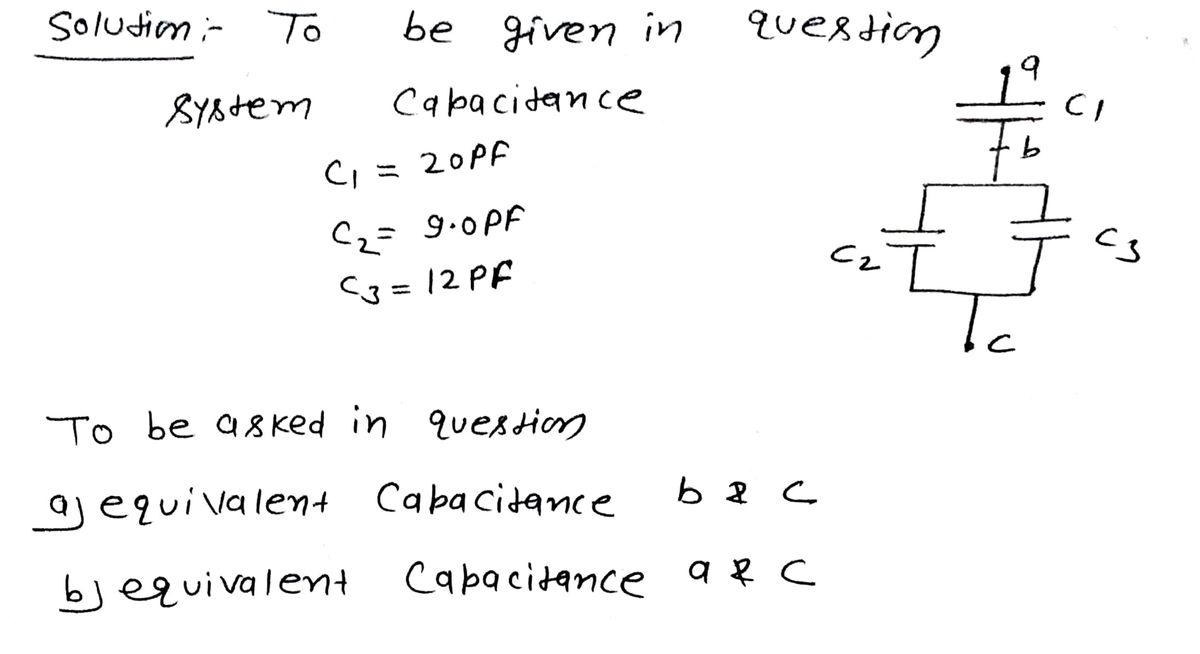 Solution :- To be given in question
System Capacitance
C1 = 20PF
C2 = 9.0PF
C3 = 12PF
a
C1
b
C2
C3
C
To be asked in question
a) equivalent Capacitance b & C
b) equivalent Capacitance a & C